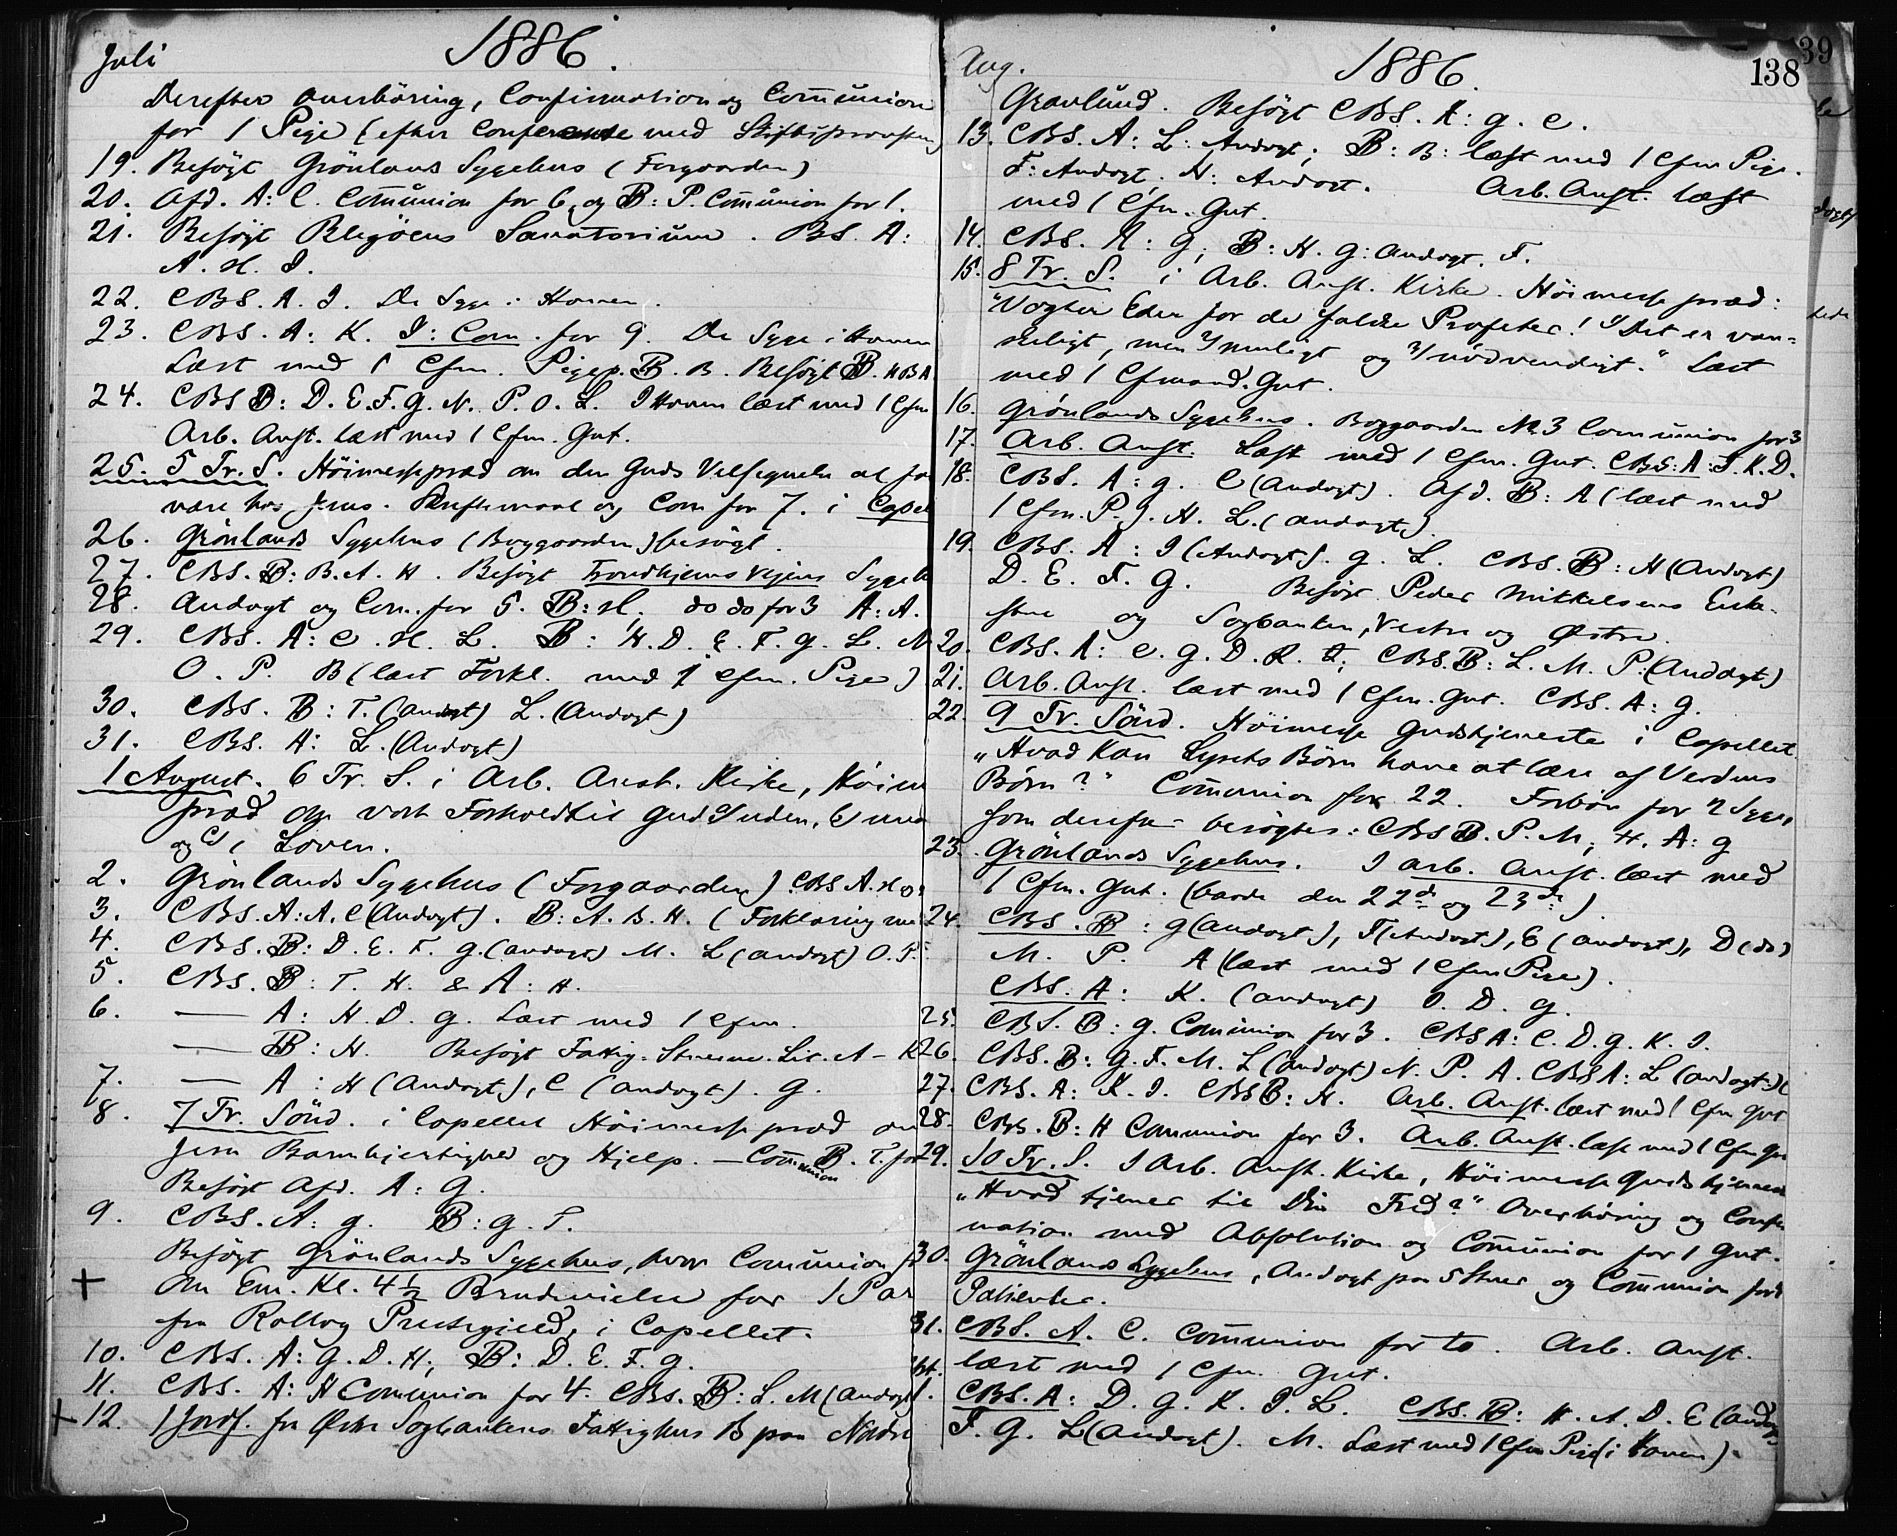 Juli 1886.
Derefter Overhöring, Confirmation og Communion
for 1 Pige (efter Conferense med Stiftsprovsten)
19. Besögt Grönlans Sygehus (Forgaarden)
20. Afd. A: C. Communion for 6, og B: P. Communion for 1.
21. Besögt Sanatorium. BS. A:
A. H. I.
22. CBS. A. I. De Syge i Haven.
23. CBS. A: K. I: Com. for 9. De Syge i Haven
Læst med 1 Cfm. Pige B. B. Besögt B. H B A
24. CBS B: D. E. F. G. N. P. O. L. I Haven læst med 1 Cfm
Arb. Anst. læst med 1 Cfm. Gut.
25. 5 Tr. S. Höimessepræd om den Guds Velsignelse at
være hos Jesus. Skriftemaal og Com for 7. i Capel
26. Grönlands Sygehus (Byggaarden) besögt.
27. CBS. B: B. A. H. Besögt Trondhjems Vejens Sygeh
28. Andagt og Com. for 5. B: H, do do for 3 A: A.
29. CBS. A: C. H. L. B: H. D. E. F. G. L. N
O. P. B (læst Forkl. med 1 Cfm. Pige)
30. CBS. B: T. (Andagt) L. (Andagt)
31. CBS. A: L. (Andagt)
1 August. 6 Tr. S. i Arb. Anst. Kirke, Höim
præd om vort Forhold til Gud a) uden, b) under
og c) i Loven.
2. Grönlands Sygehus (Forgaarden) CBS A. H
3. CBS. A: A, C (Andagt). B: A. B. H. (Forklaring me
4. CBS. B: D. E. F. G. (Andagt) M. L (Andagt) O. P.
5. CBS. B: T. H. & A: H.
6. — A: H. D. G. Læst med 1 Cfm.
— B: H. Besögt Fattig. A – K
7. — A: H (Andagt), C (Andagt). G.
8. 7 Tr. Sönd. i Capellet Höimesse præd om
Jesu Barmhjertighed og Hjelp. — Communion B. T. for
Besögt Afd. A: G.
9. CBS. A: G. B: G. T.
Besögt Grönlands Sygehus, hvor Communion f
+ Om Em. Kl. 4½ Brudevielse for 1 Par
fra Præstegjeld, i Capellet.
10. CBS. A: G. D. H; B: D. E. F. G.
11. CBS. A: H Communion for 4. CBS. B: L. M (Andagt)
+ 12. 1 Jordf. fra Østre Sogbankens Fattighus B paa Nordre
Aug. 1886. 138
Gravlund. Besögt CBS. A: G. C.
13. CBS. A: L: Andagt; B: B: læst med 1 Cfm Pige.
F: Andagt, N: Andagt. Arb. Anst. læst
med 1 Cfm. Gut.
14. CBS. A: G; B: H. G: Andagt. F.
15. 8 Tr. S. i Arb. Anst. Kirke. Höimesse præd:
"Vogter Eder for de falske Profeter! 1) Det er van-
skeligt, men 2) muligt og 3) nödvendigt." Læst
med 1 Cfmand. Gut.
16. Grönlands Sygehus. Byggaarden No 3 Communion for 3
17. Arb. Anst. Læst med 1 Cfm. Gut. CBS: A: I. K. D.
18. CBS. A: G. C (Andagt). Afd. B: A (læst med
1 Cfm. P. J. H. L. (Andagt).
19. CBS. A: I (Andagt). G. L. CBS. B: H (Andagt)
D. E. F. G. Besögt Peder Mikkelsens Enke-
stue og Sogbanken, Vestre og Østre.
20. CBS. A: C. G. D. K. I; CBS. B: L. M. P. (Andagt)
21. Arb. Anst. læst med 1 Cfm. Gut. CBS. A: G.
22. 9 Tr. Sönd. Höimesse Gudstjeneste i Capellet
„Hvad kan Lysets Börn have at lære af Verdens
Börn?" Communion for 22. Forbön for 2 Syge,
som derefter besögtes: CBS B. P. M; H. A: G
23. Grönlands Sygehus. I Arb. Anst. læst med
1 Cfm. Gut. (baade den 22de og 23de).
24. CBS. B: G (Andagt), F (Andagt), E (Andagt), D (do)
M. P. A (læst med 1 Cfm Pige).
CBS. A: K. (Andagt) I. D. G.
25. CBS. B: G. Communion for 3. CBS A: C. D. G. K. I.
26. CBS. B: G. F. M. L (Andagt) N. P. A. CBS A: L (Andagt)
27. CBS. A: K. I. CBS B: H. Arb. Anst. læst med 1 Cfm Gut
28. CBS. B: H Communion for 3. Arb. Anst. læst med 1 Cfm Gut
29. 10 Tr. S. I Arb. Anst. Kirke, Höimesse Gudstjeneste
„Hvad tjener til Din Fred?" Overhöring og Confir
mation med Absolution og Communion for 1 Gut.
30. Grönlands Sygehus, Andagt paa 5 Stuer og Communion for
Patienter.
31. CBS. A. C. Communion for to. Arb. Anst.
læst med 1 Cfm. Gut.
1. CBS. A: D. G. K. I. L. CBS. B: H. A. D. E (Andagt
F. G. L (Andagt). M. Læst med 1 Cfm Pige (i Haven).
39